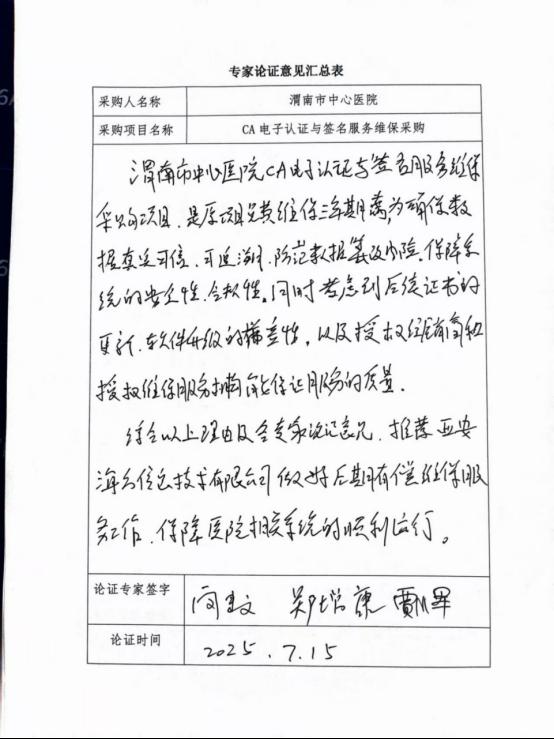 专家论证意见汇总表
采购人名称 渭南市中心医院
采购项目名称 CA电子认证与签名服务维保采购
渭南市中心医院CA电子认证与签名服务维保
采购项目,是原项目免费维保三年期满,为确保数
据真实可信、可追溯、防范数据篡改风险、保障系
统的安全性、合规性。同时考虑到后续证书的
更新、软件升级的兼容性,以及授权经销商和
授权维保服务拥有能保证服务的质量.
结合以上理由及各专家论证意见,推荐西安
海云信息技术有限公司做好后期有偿维保服
务工作、保障医院相关系统的顺利运行。
论证专家签字
论证时间 2025.7.15